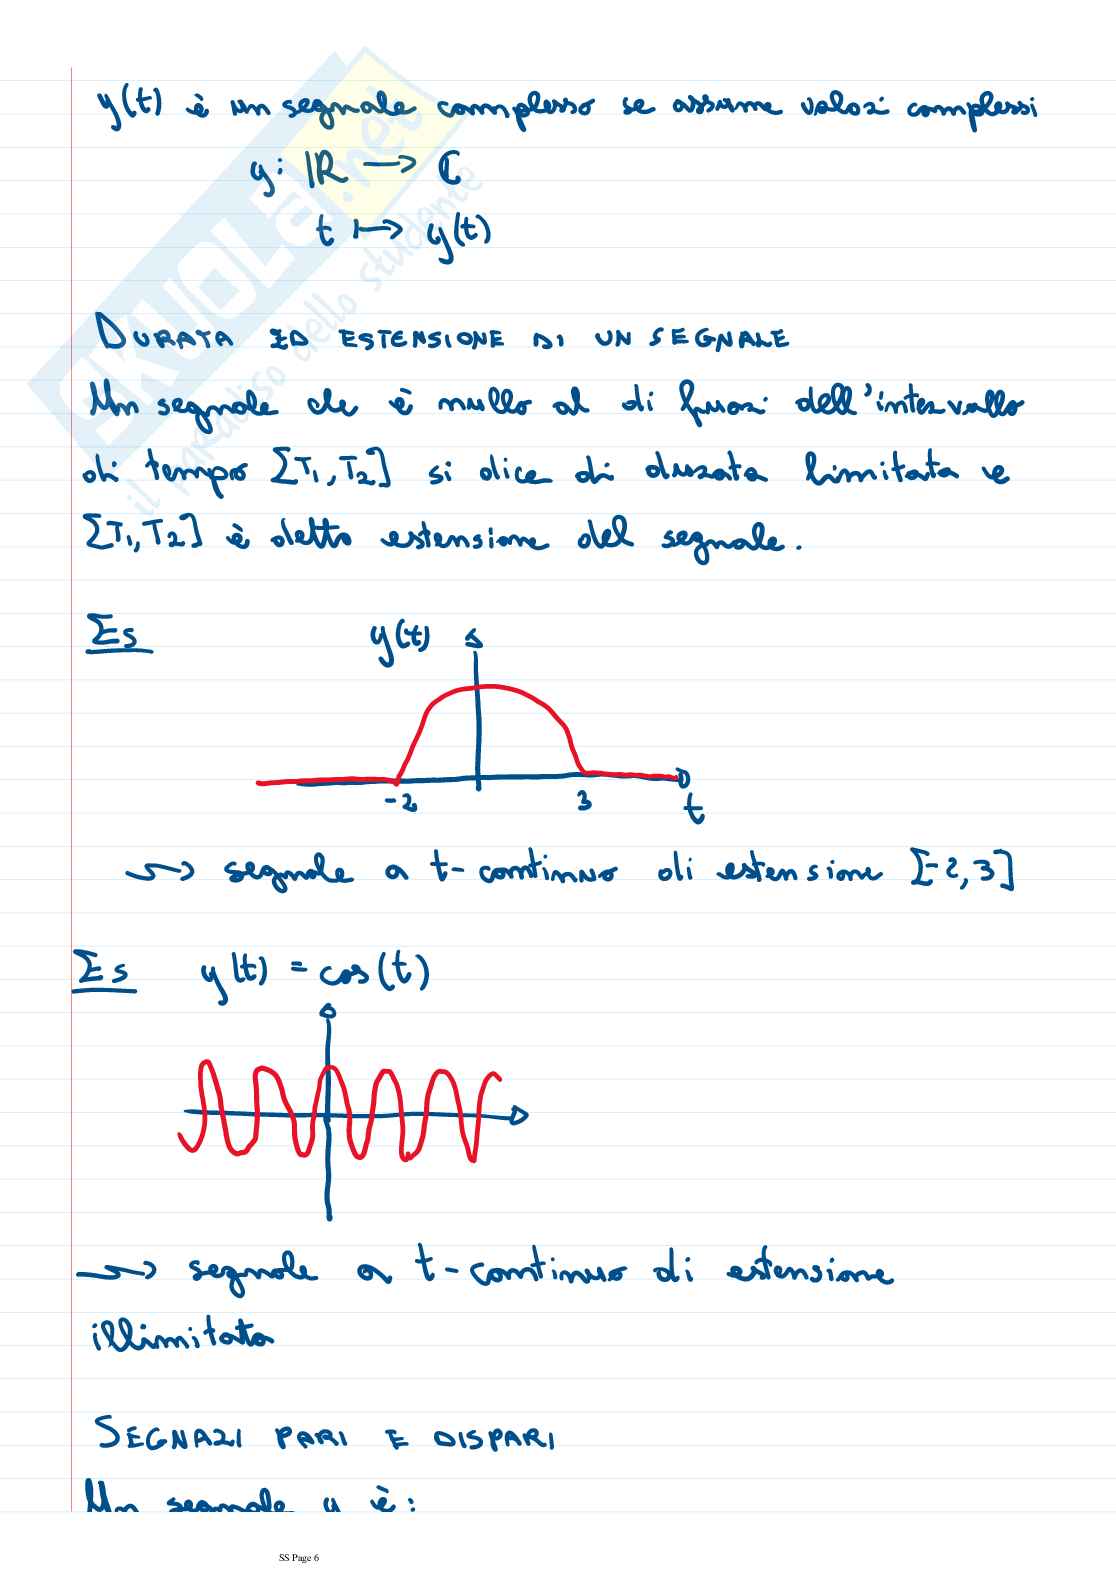 y(t) è un segnale complesso se assume valori complessi
y: ℝ → ℂ
t ↦ y(t)
DURATA ED ESTENSIONE DI UN SEGNALE
Un segnale che è nullo al di fuori dell'intervallo
di tempo [T1, T2] si dice di durata limitata e
[T1, T2] è detto estensione del segnale.
Es
y(t)
-2 3 t
⇝ segnale a t-continuo di estensione [-2, 3]
Es y(t) = cos(t)
⇝ segnale a t-continuo di estensione
illimitata
SEGNALI PARI E DISPARI
Un segnale y è:
SS Page 6
SKUOLA.net
il paradiso dello studente